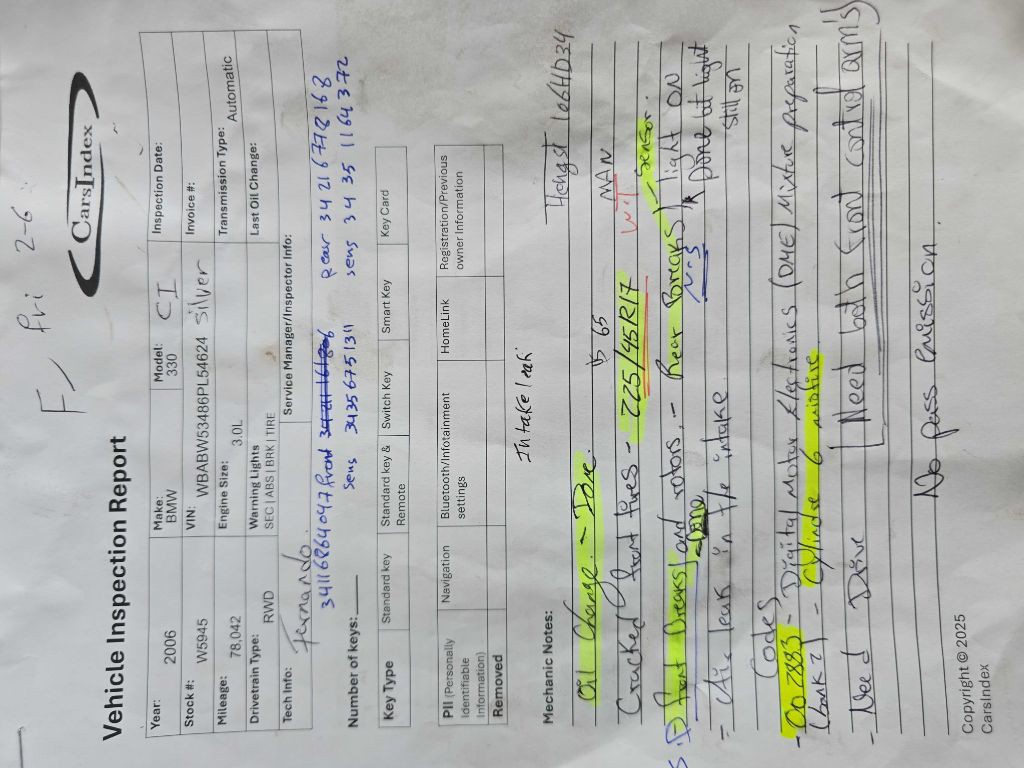 F, Fri 2-6
CarsIndex
Vehicle Inspection Report
Year: 2006 Make: BMW Model: 330 CI Inspection Date:
Stock #: W5945 VIN: WBABW53486PL54624 Silver Invoice#:
Mileage: 78,042 Engine Size: 3.0L Transmission Type: Automatic
Drivetrain Type: RWD Warning Lights SEC | ABS | BRK | TIRE Last Oil Change:
Tech Info: Fernando Service Manager/Inspector Info:
34116864047 front Rear 34 21 6778168
Number of keys: Sens 34356751311 sens 34 35 1164372
Key Type Standard key Standard key & Remote Switch Key Smart Key Key Card
PII (Personally Identifiable Information) Removed Navigation Bluetooth/Infotainment settings HomeLink Registration/Previous owner Information
Intake leak
Mechanic Notes: 1064D34
Oil Change. - Done. 65 MAN
Cracked front tires - 225/45R17 - sensor.
front Breaks and rotors. - Rear Breaks light ON
Done Done but light still on
- leak in the intake
Codes
- 002883 - Digital Motor Electronics (DME) Mixture preparation
(bank 2) - Cylinder 6
- Need Drive Need both front control arms
No pass Emission.
Copyright © 2025
CarsIndex